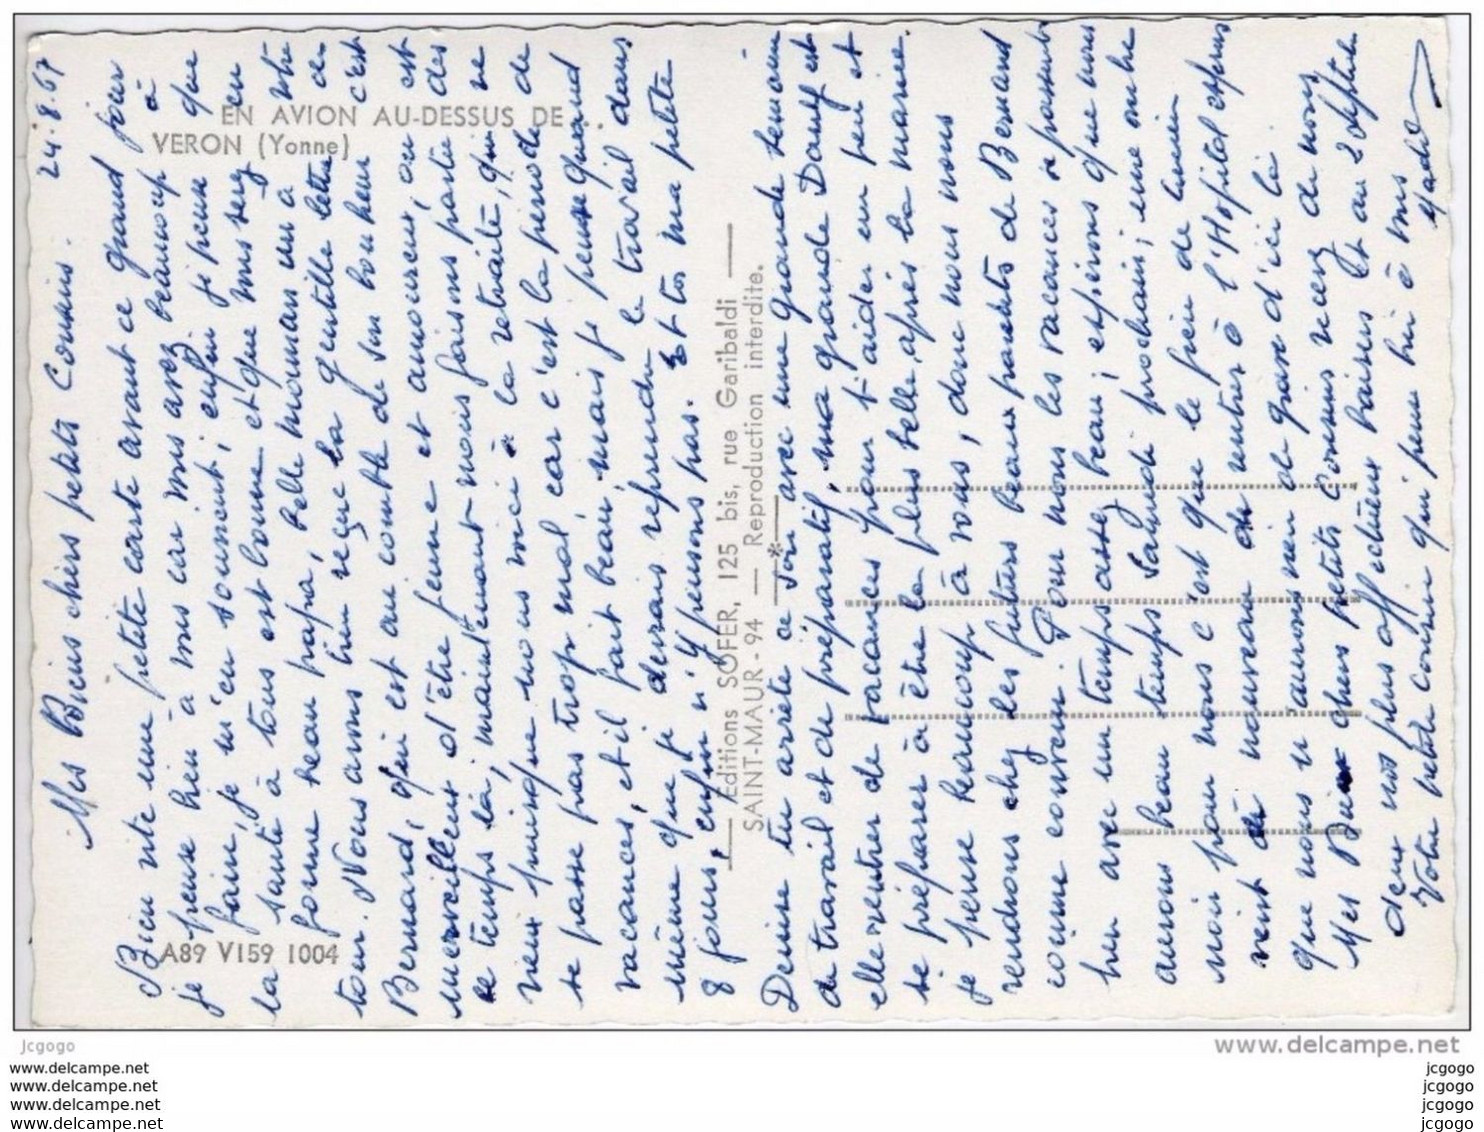 24.8.67
Mes Biens chers petits Cousins.
Bien vite une petite carte avant ce grand jour
je pense bien à vous car vous avez beaucoup à
faire, je m'en souvient, enfin je pense que
la santé à tous est bonne et que vous serez en
forme beau papa, belle maman vu à votre
tour. Nous avons bien reçue ta gentille lettre de
Bernard, qui est au comble de son bonheur c'est
merveilleux d'être jeune et amoureux, on est
ce temps là, maintenant nous faisons partie des
vieux puisque nous voici à la retraite, qui ne
se passe pas trop mal, car c'est la période de
vacances, et il fait beau, mais je pense quand
même que je devrais reprendre le travail dans
8 jours, enfin n'y pensons pas. Et toi ma petite
Denise tu arrête ce soir avec une grande semaine
de travail et de préparatif, ma grande Dany est
elle rentrer de vacances pour t'aider un peu et
se préparer à être la plus belle, après la mariée.
je pense beaucoup à vous, donc nous nous
rendrons chez les futurs beaux parents de Bernard
comme convenu. Pour nous les vacances se passent
bien avec un temps assez beau, espérons que nous
aurons beau temps Samedi prochain, une ombre
noir pour nous c'est que le père de Lucien
vient à nouveau de rentrer à l'Hôpital espérons
que nous n'aurons rien de grave d'ici là
Mes Biens chers petits Cousins recevez de nous
deux nos plus affectueux baisers Et au 2 Septembre
Votre petite cousine qui pense bien à vous
EN AVION AU-DESSUS DE...
VERON (Yonne)
A89 V159 1004
Editions SOFER, 125 bis, rue Garibaldi
SAINT-MAUR - 94 — Reproduction interdite.
jcgogo
www.delcampe.net
www.delcampe.net
www.delcampe.net
www.delcampe.net
www.delcampe.net
jcgogo
jcgogo
jcgogo
jcgogo